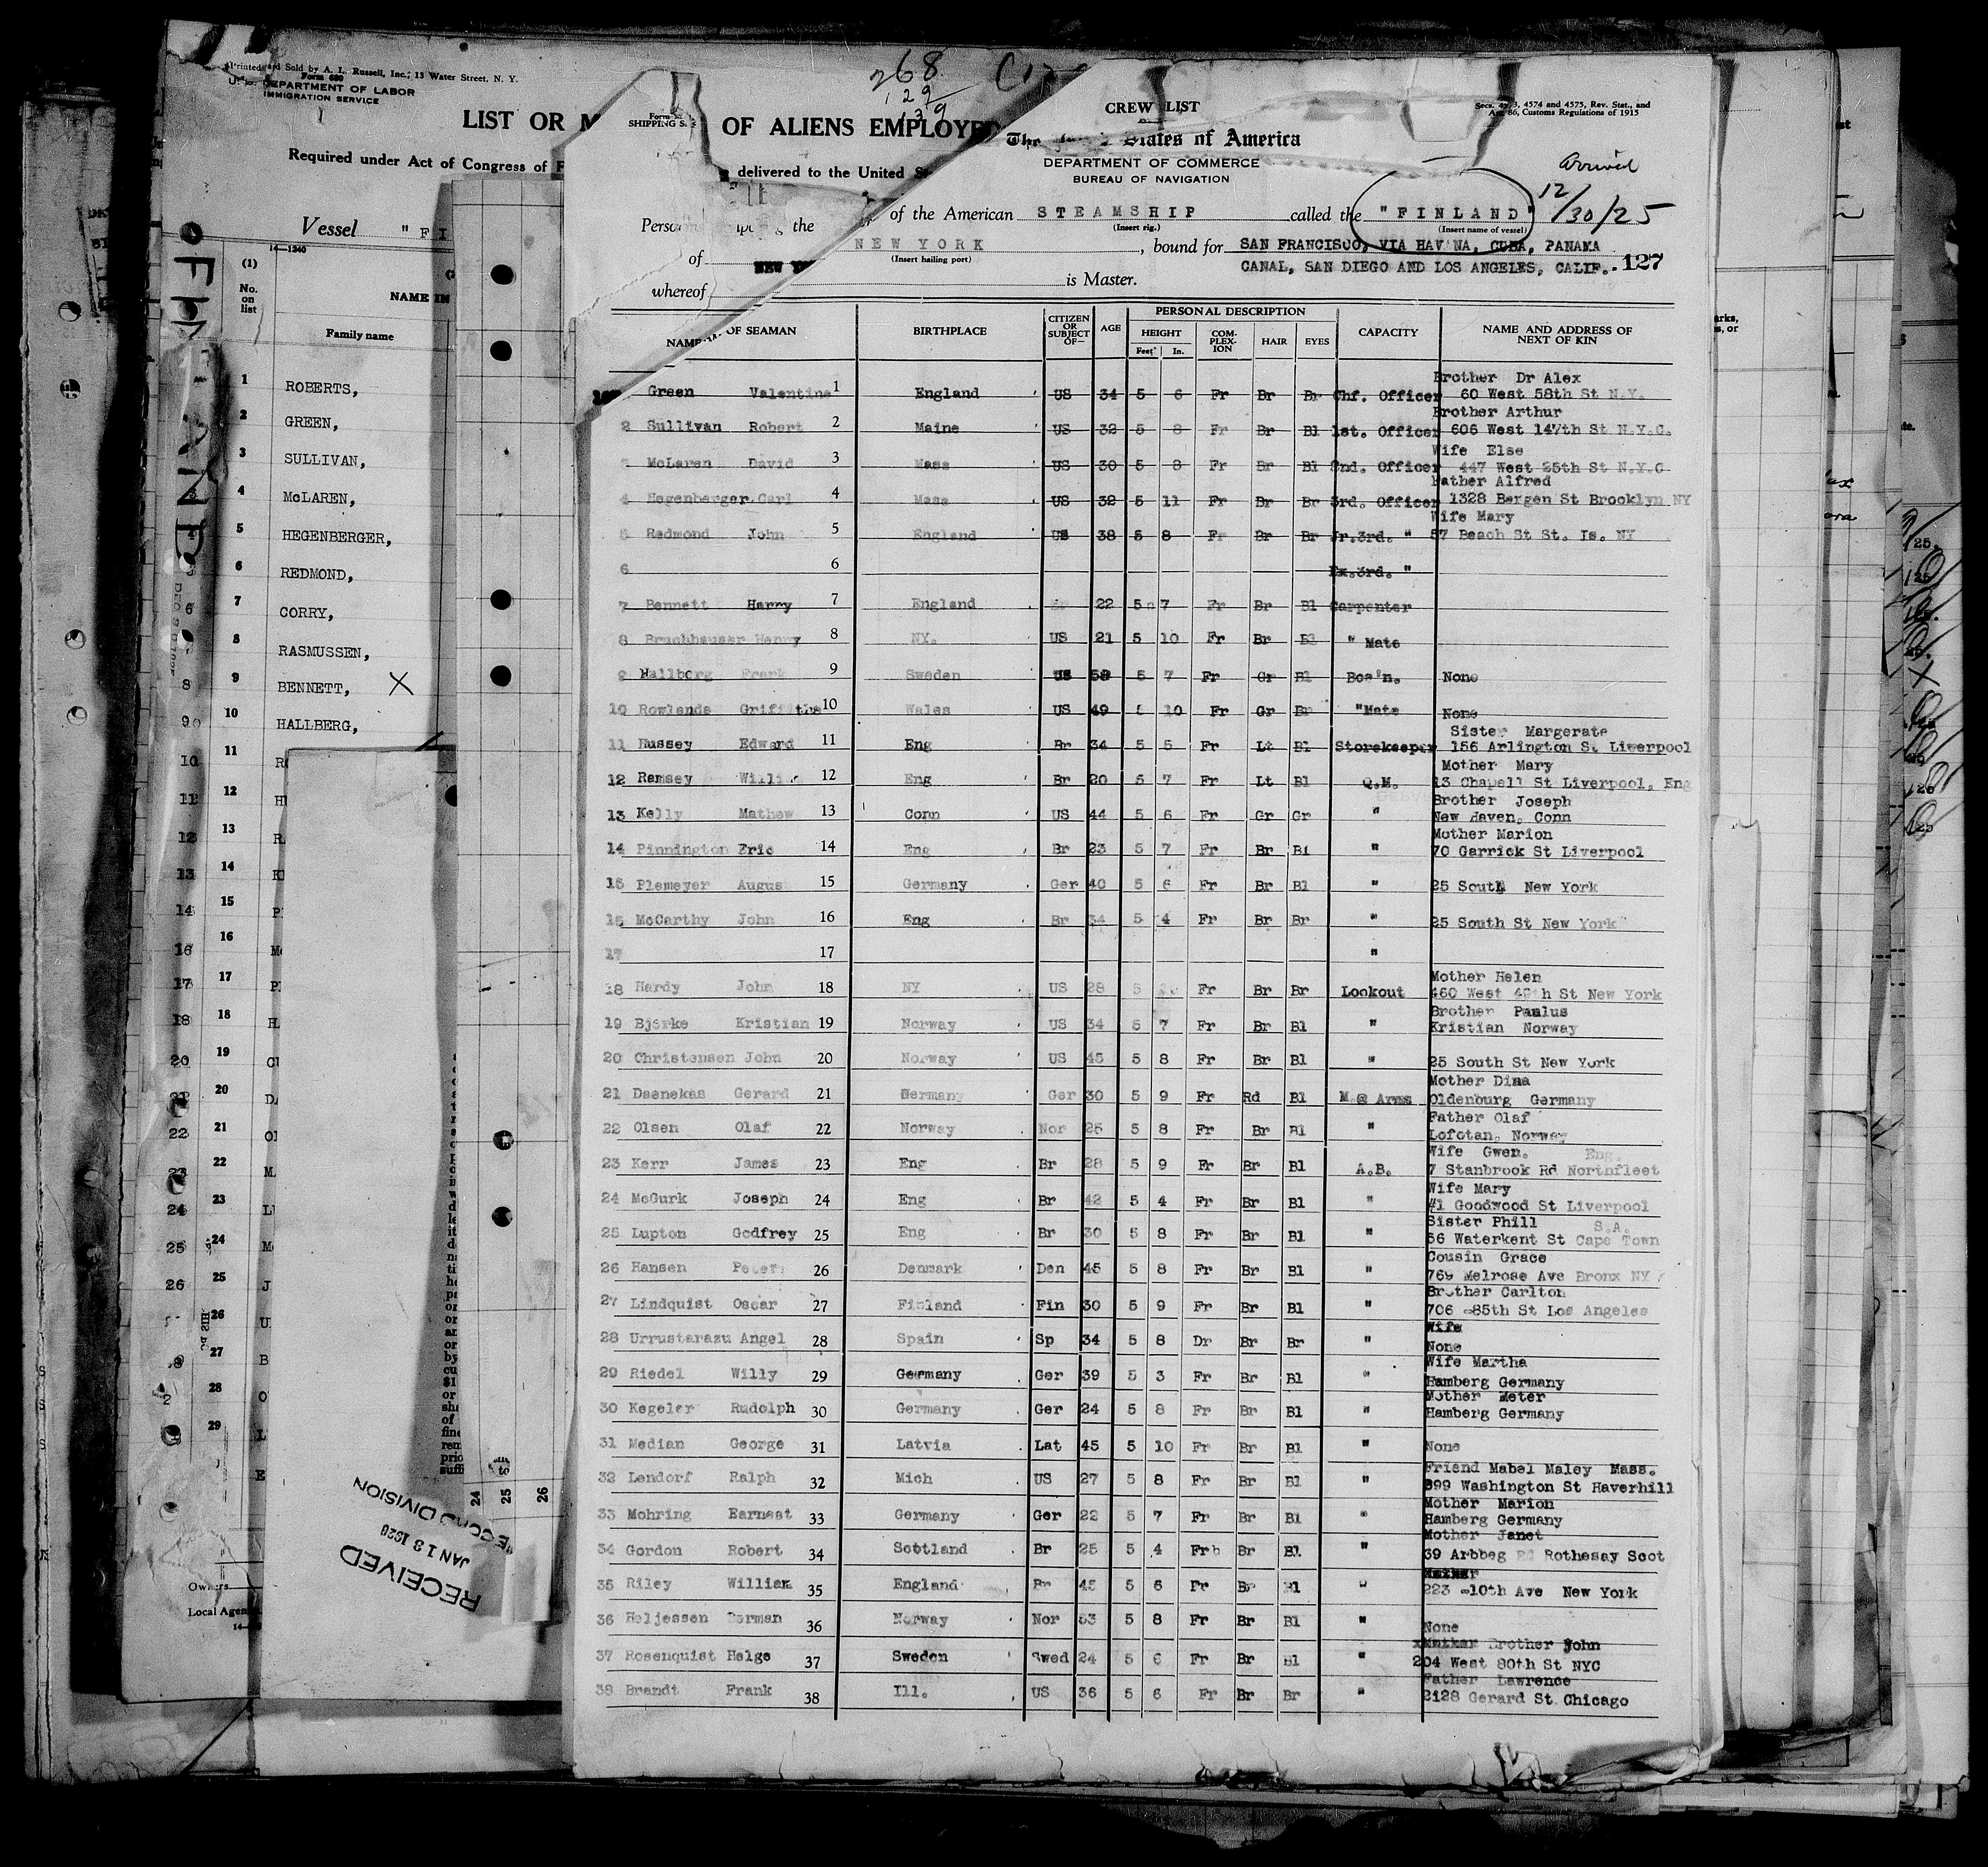 Printed and Sold by A. L. Russell, Inc., 13 Water Street, N. Y.
Form 680
DEPARTMENT OF LABOR
IMMIGRATION SERVICE
LIST OR
OF ALIENS EMPLOYED
Required under Act of Congress of
delivered to the United
Vessel "FI
14—1240
(1)
No.
on
list
NAME IN
Family name
1 ROBERTS,
2 GREEN,
3 SULLIVAN,
4 McLAREN,
5 HEGENBERGER,
6 REDMOND,
7 CORRY,
8 RASMUSSEN,
9 BENNETT, X
10 HALLBERG,
11
12
13
14
15
16
17
18
19
20
21
22
23
24
25
26
27
28
29
Owners
Local Agen
RECEIVED
JAN 13 1926
RECORD DIVISION
24 25 26
268
129
139
SHIPPING
CREW LIST
Secs. 4573, 4574 and 4575, Rev. Stat., and
Art. 86, Customs Regulations of 1915
The States of America
DEPARTMENT OF COMMERCE
BUREAU OF NAVIGATION
Arrived
12/30/25
the of the American STEAMSHIP called the "FINLAND"
(Insert rig.) (Insert name of vessel)
of NEW YORK, bound for SAN FRANCISCO, VIA HAVANA, CUBA, PANAMA
(Insert hailing port)
CANAL, SAN DIEGO AND LOS ANGELES, CALIF. 127
whereof is Master.
NAME OF SEAMAN BIRTHPLACE CITIZEN OR SUBJECT OF— AGE PERSONAL DESCRIPTION HEIGHT Feet In. COMPLEXION HAIR EYES CAPACITY NAME AND ADDRESS OF NEXT OF KIN
Brother Dr Alex
Green Valentine 1 England US 34 5 6 Fr Br Br Chf. Officer 60 West 58th St N.Y.
Brother Arthur
2 Sullivan Robert 2 Maine US 32 5 8 Fr Br Bl 1st. Officer 606 West 147th St N.Y.C.
Wife Else
McLaren David 3 Mass US 30 5 8 Fr Br Bl 2nd. Officer 447 West 25th St N.Y.C
Father Alfred
4 Hegenberger Carl 4 Mass US 32 5 11 Fr Br Br 3rd. Officer 1328 Bergen St Brooklyn NY
Wife Mary
5 Redmond John 5 England US 38 5 8 Fr Br Br Jr.3rd. " 57 Beach St St. Is. NY
6 6 Ex.3rd. "
7 Bennett Harry 7 England 22 5 7 Fr Br Bl Carpenter
8 Bruchhauser Henry 8 NY. US 21 5 10 Fr Br Bl " Mate
9 Hallberg Frank 9 Sweden US 58 5 7 Fr Gr Bl Bos'n. None
10 Rowlands Griffiths 10 Wales US 49 5 10 Fr Gr Br "Mate None
Sister Margerate
11 Hussey Edward 11 Eng Br 34 5 5 Fr Lt Bl Storekeeper 156 Arlington St Liverpool
Mother Mary
12 Ramsey 12 Eng Br 20 5 7 Fr Lt Bl Q.M. 13 Chapell St Liverpool, Eng
Brother Joseph
13 Kelly Mathew 13 Conn US 44 5 6 Fr Gr Gr " New Haven, Conn
Mother Marion
14 Pinnington Eric 14 Eng Br 23 5 7 Fr Br Bl " 70 Garrick St Liverpool
15 Plemeyer Augus 15 Germany Ger 40 5 6 Fr Br Bl " 25 South New York
16 McCarthy John 16 Eng Br 34 5 4 Fr Br Br " 25 South St New York
17 17 "
Mother Helen
18 Hardy John 18 NY US 28 5 Fr Br Br Lookout 460 West 49th St New York
Brother Paulus
19 Bjerke Kristian 19 Norway US 34 5 7 Fr Br Bl " Kristian Norway
20 Christensen John 20 Norway US 45 5 8 Fr Br Bl " 25 South St New York
Mother Dina
21 Daenekas Gerard 21 Germany Ger 30 5 9 Fr Rd Bl M @ Arms Oldenburg Germany
Father Olaf
22 Olsen Olaf 22 Norway Nor 25 5 8 Fr Br Bl " Lofotan, Norway
Wife Gwen. Eng.
23 Kerr James 23 Eng Br 28 5 9 Fr Br Bl A.B. 7 Stanbrook Rd Northfleet
Wife Mary
24 McGurk Joseph 24 Eng Br 42 5 4 Fr Br Bl " #1 Goodwood St Liverpool
Sister Phill S.A.
25 Lupton Godfrey 25 Eng Br 30 5 8 Fr Br Bl " 56 Waterkent St Cape Town
Cousin Grace
26 Hansen Peter 26 Denmark Den 45 5 8 Fr Br Bl " 769 Melrose Ave Bronx NY
Brother Carlton
27 Lindquist Oscar 27 Finland Fin 30 5 9 Fr Br Bl " 706 -85th St Los Angeles
Wife
28 Urrustarazu Angel 28 Spain Sp 34 5 8 Dr Br Br " None
Wife Martha
29 Riedel Willy 29 Germany Ger 39 5 3 Fr Br Bl " Hamberg Germany
Mother Meter
30 Kegeler Rudolph 30 Germany Ger 24 5 8 Fr Br Bl " Hamberg Germany
31 Median George 31 Latvia Lat 45 5 10 Fr Br Bl " None
Friend Mabel Maley Mass.
32 Lendorf Ralph 32 Mich US 27 5 8 Fr Br Bl " 899 Washington St Haverhill
Mother Marion
33 Mohring Earnest 33 Germany Ger 22 5 7 Fr Br Bl " Hamberg Germany
Mother Janet
34 Gordon Robert 34 Scotland Br 25 5 4 Fr Br Bl " 39 Arbbeg Rd Rothesay Scot
35 Riley William 35 England Br 45 5 6 Fr Br Bl " 223 -10th Ave New York
36 Heljessen Herman 36 Norway Nor 53 5 8 Fr Br Bl " None
Brother John
37 Rosenquist Helge 37 Sweden Swed 24 5 6 Fr Br Bl " 204 West 80th St NYC
Father Lawrence
38 Brandt Frank 38 Ill. US 36 5 6 Fr Br Br " 2128 Gerard St Chicago